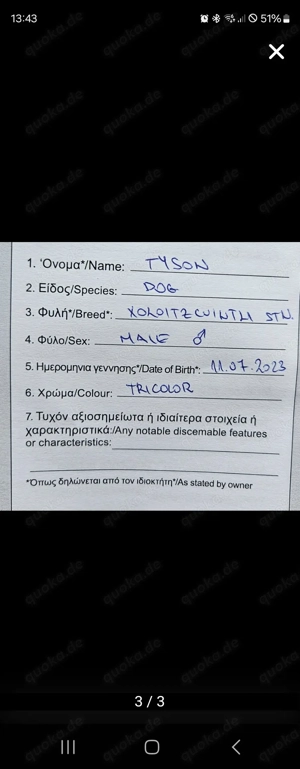 13:43
51%
1. Όνομα*/Name: TYSON
2. Είδος/Species: DOG
3. Φυλή*/Breed*: XOLOITZCUINTLI STN.
4. Φύλο/Sex: MALE ♂
5. Ημερομηνια γεννησης*/Date of Birth*: 11.07.2023
6. Χρώμα/Colour: TRICOLOR
7. Τυχόν αξιοσημείωτα ή ιδιαίτερα στοιχεία ή
χαρακτηριστικά:/Any notable discernable features
or characteristics:
*Όπως δηλώνεται από τον ιδιοκτήτη*/As stated by owner
3 / 3